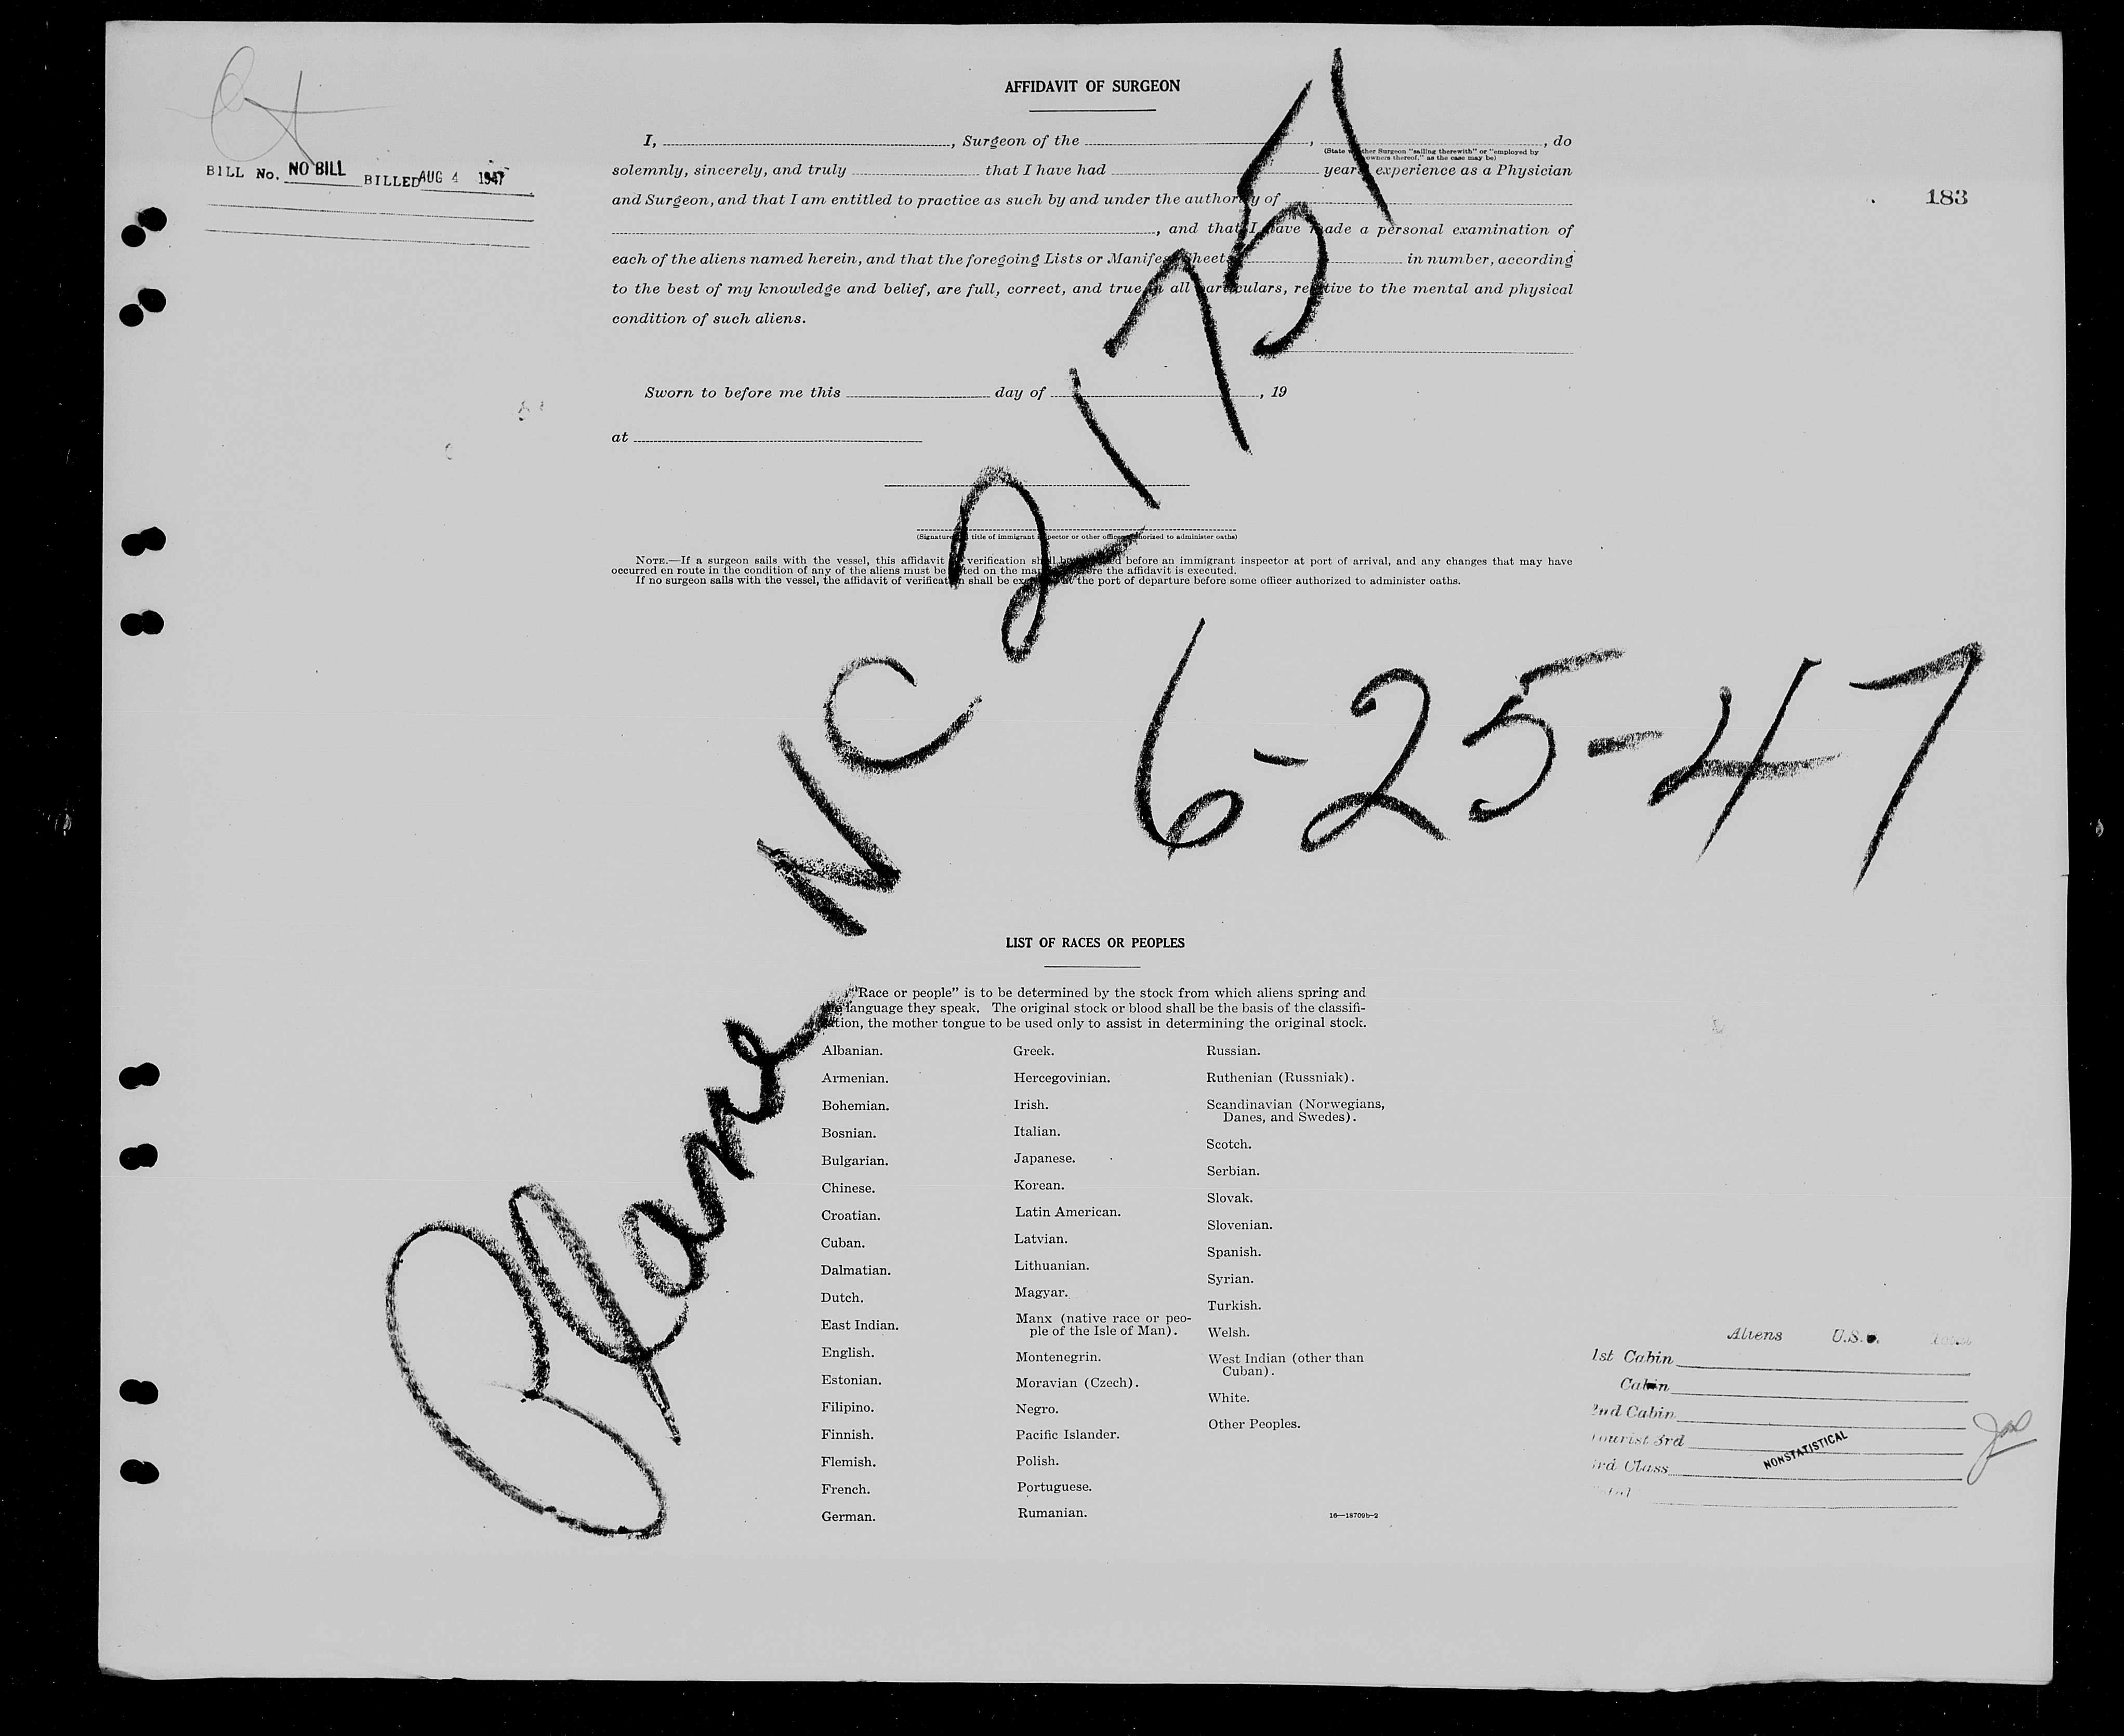 AFFIDAVIT OF SURGEON
I, , Surgeon of the , , do
(State whether Surgeon "sailing therewith" or "employed by
owners thereof," as the case may be)
BILL No. NO BILL BILLED AUG 4 1947
solemnly, sincerely, and truly that I have had years experience as a Physician
183
and Surgeon, and that I am entitled to practice as such by and under the authority of
, and that I have made a personal examination of
each of the aliens named herein, and that the foregoing Lists or Manifest Sheets, in number, according
to the best of my knowledge and belief, are full, correct, and true in all particulars, relative to the mental and physical
condition of such aliens.
Sworn to before me this day of , 19
at
(Signature and title of immigrant inspector or other officer authorized to administer oaths)
NOTE.—If a surgeon sails with the vessel, this affidavit verification shall be before an immigrant inspector at port of arrival, and any changes that may have
occurred en route in the condition of any of the aliens must be noted on the manifest before the affidavit is executed.
If no surgeon sails with the vessel, the affidavit of verification shall be executed at the port of departure before some officer authorized to administer oaths.
Plane NC 21751
6-25-47
LIST OF RACES OR PEOPLES
"Race or people" is to be determined by the stock from which aliens spring and
the language they speak. The original stock or blood shall be the basis of the classifi-
cation, the mother tongue to be used only to assist in determining the original stock.
Albanian.
Armenian.
Bohemian.
Bosnian.
Bulgarian.
Chinese.
Croatian.
Cuban.
Dalmatian.
Dutch.
East Indian.
English.
Estonian.
Filipino.
Finnish.
Flemish.
French.
German.
Greek.
Hercegovinian.
Irish.
Italian.
Japanese.
Korean.
Latin American.
Latvian.
Lithuanian.
Magyar.
Manx (native race or peo-
ple of the Isle of Man).
Montenegrin.
Moravian (Czech).
Negro.
Pacific Islander.
Polish.
Portuguese.
Rumanian.
Russian.
Ruthenian (Russniak).
Scandinavian (Norwegians,
Danes, and Swedes).
Scotch.
Serbian.
Slovak.
Slovenian.
Spanish.
Syrian.
Turkish.
Welsh.
West Indian (other than
Cuban).
White.
Other Peoples.
16—18709b-2
Aliens U.S.
1st Cabin
Cabin
2nd Cabin
Tourist 3rd
3rd Class
NONSTATISTICAL